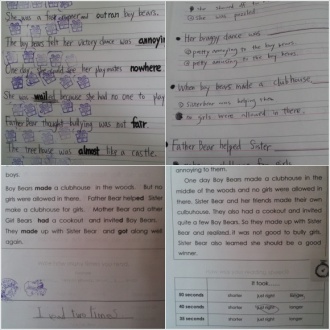 She was a fast       and outran boy bears.
The boy bears felt her victory dance was annoying
One day,       could see her playmates nowhere.
She was wail       because she had no one to play
Father Bear thought bullying was not fair.
The tree house was almost like a castle.
She was puzzled.
Her buggy dance was
pretty annoying to the boy bears
pretty annoying to the boy bears.
When boy bears made a clubhouse
Sister bear was helping them
no girls were allowed in there.
Father Bear helped Sister
boys.
Boy Bears made a clubhouse in the woods. But no
girls were allowed in there. Father Bear helped Sister
make a clubhouse for girls. Mother Bear and other
Girl Bears had a cookout and invited Boy Bears.
They made up with Sister Bear and got along well
again.
I read two times
annoying to them.
One day Boy Bears made a clubhouse in the
middle of the woods and no girls were allowed in
there. Sister Bear and her friends made their own
clubhouse. They also had a cookout and invited
quite a few Boy Bears. So they made up with Sister
Bear and realized it was not good to bully girls.
Sister Bear also learned she should be a good
winner.
It took......
30 seconds shorter just right longer
40 seconds shorter just right longer
35 seconds shorter just right longer